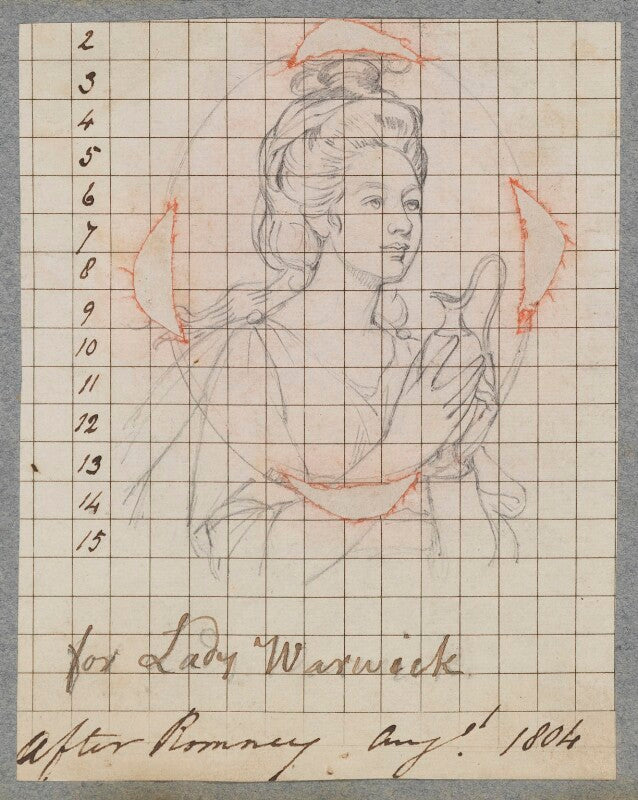 2
3
4
5
6
7
8
9
10
11
12
13
14
15
for Lady Warwick
After Romney. Augst 1804